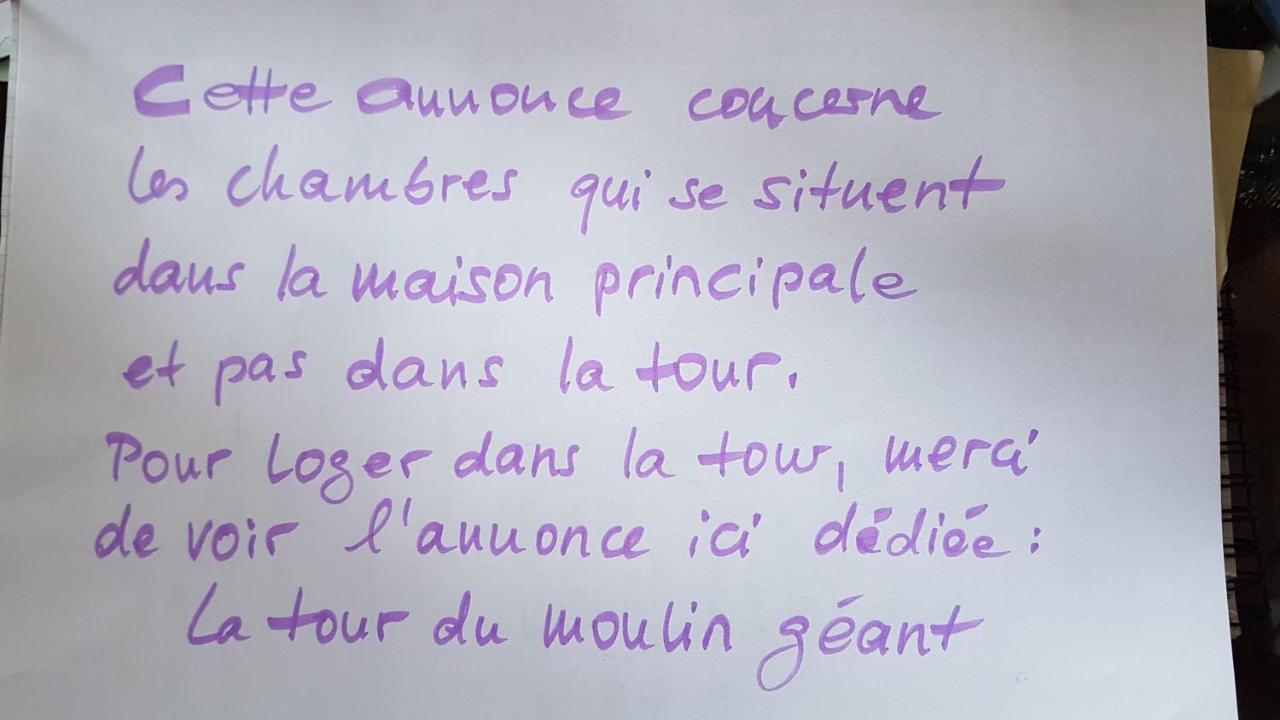 Cette annonce concerne
les chambres qui se situent
dans la maison principale
et pas dans la tour.
Pour Loger dans la tour, merci
de voir l'annonce ici dédiée :
La tour du moulin géant